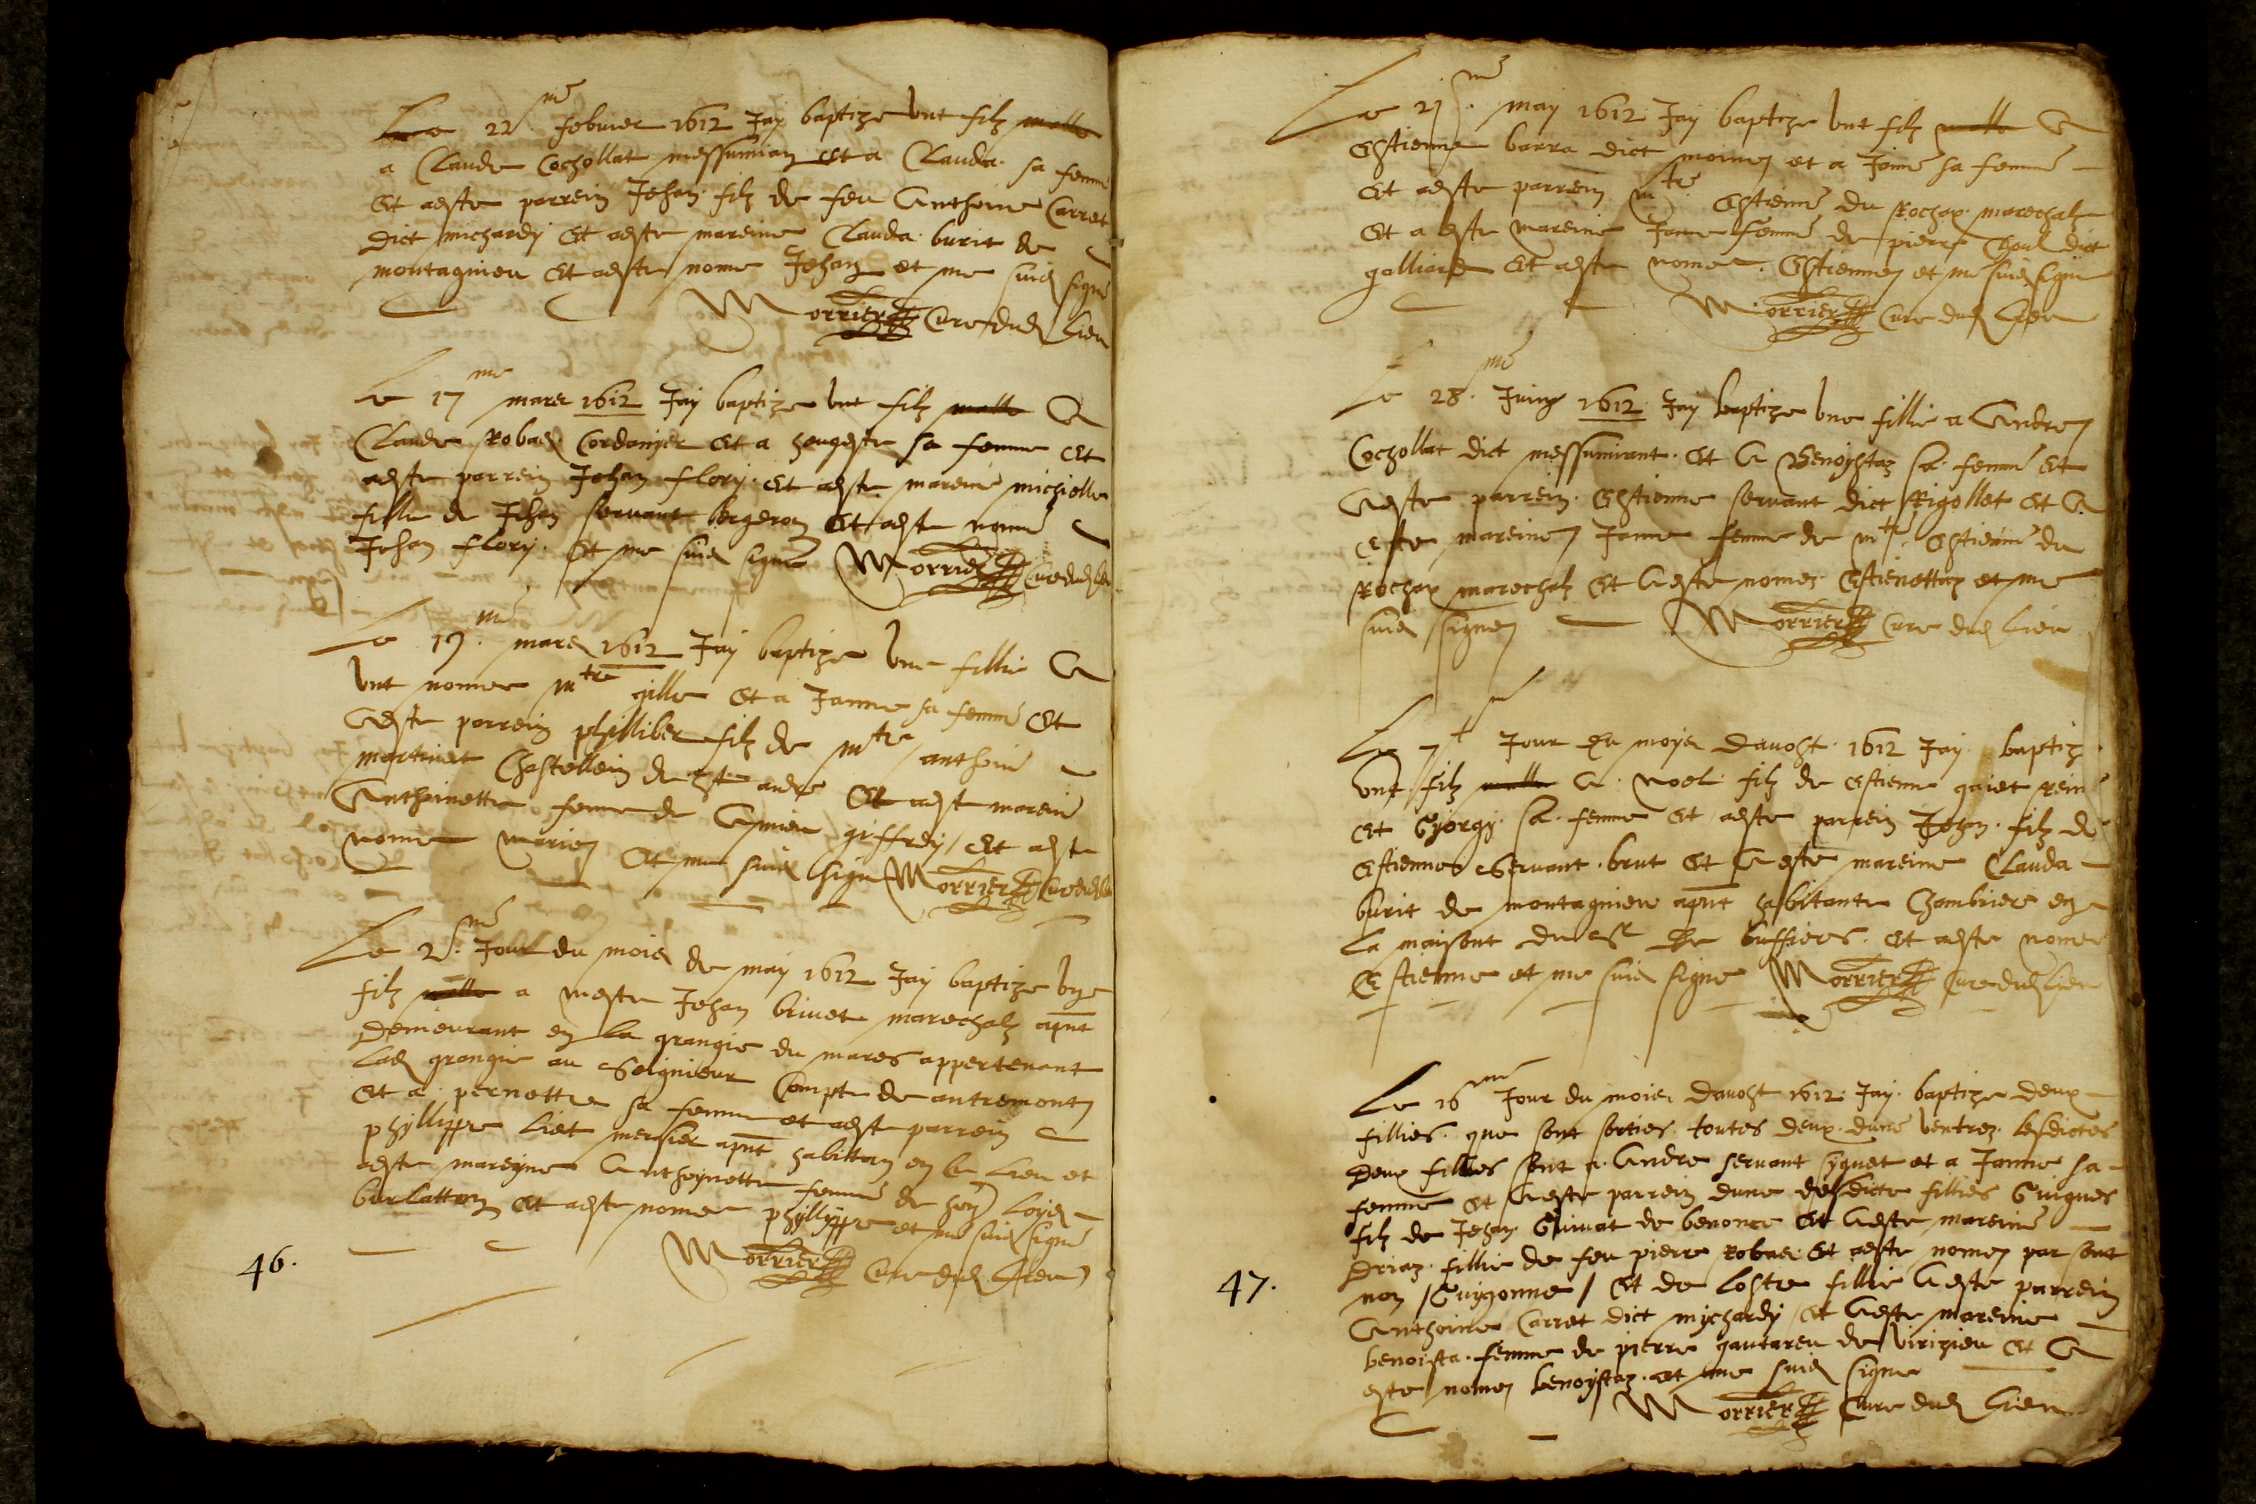 Le 22 me febvrier 1612 Jay baptize unt filz malle
a Claude Cochollat messumian et a Clauda sa femme
Et aeste parrein Jehan filz de feu Anthoine Carret
dict michardy Et aeste mareine Clauda burit de
montagnieu Et aeste nome Jehan et me suis signe
Morrier Cure dud lieu
Le 17 me mars 1612 Jay baptize unt filz malle A
Claude Robas Cordanier Et a heugeste sa femme Et
aeste parrein Jehan flory Et aeste mareine michielle
fille de Jehan servant bergeron Et aeste nome
Jehan flory Et me suis signe Morrier Cure dud lieu
Le 19 me mars 1612 Jay baptize une fillie A
unt nomee mtre gille Et a Janne sa femme Et
Aeste parrein philliber filz de mtre anthoine
martinet Chastellein de st andre Et aeste mareine
Anthoinette femme de Aymen giffredy / Et aeste
nomee Marie Et me suis signe Morrier Cure dud lieu
Le 2 me Jour du mois de may 1612 Jay baptize ung
filz malle a mestre Jehan brivet marechalz apnt
Demeurant en la grangie du mares appertenant
lad grangie au Seignieur Compte de antremont
Et a pernette sa femme et aeste parrein
phyllippe liet mersier apnt habittan en ce lieu et
aeste mareyne Antheynette femme de hey loyes
burlatton Et aeste nome phyllippe et me suis signe
Morrier Cure dud lieu
46.
Le 21 me may 1612 Jay baptize unt filz malle A
Estienne barra dict moine et a Jeime sa femme
Et aeste parrein mtre Estienne du Rochax marechalz
Et a este mareine Janne femme de pierre Choul dict
galliard Et aeste nome Estienne et me suis signe
Morrier Cure dud lieu
Le 28 me Juing 1612 Jay baptize une fillie a Andre
Cochollat dict messumiant Et A Benoystaz sa femme Et
Aeste parrein Estienne servant dict Rigollet Et A
este mareine Janne femme de mtre Estienne du
Rochax marechalz Et Aeste nomez Estienettaz et me
suis signe Morrier Cure dud lieu
Le 7 Jour du moys davost 1612 Jay baptize
unt filz malle A noel filz de estienne gaiet
Et Gyorgy sa femme Et aeste parrein Jehan filz de
estienne Servant brut Et A este mareine Clauda
burit de montagnieu apnt habitante Chambriere en
la maisont du sr De buffieres Et aeste nome
Estienne et me suis signe Morrier Cure dud lieu
Le 16 me Jour du mois davost 1612 Jay baptize deux
fillies que sont sorties toutes deux dune ventrez lesdictes
deux fillies sont a Andre servant syquet et a Janne sa
femme Et Aeste parrein dune desdicte fillies Guigues
filz de Jehan Guivat de benonce Et Aeste mareine
Driaz fillie de feu pierre Robas Et aeste nome par sont
non / Guygonne / Et de lostre fillie Aeste parrein
Anthoine Carret dict mychardy Et Aeste mareine
benoista femme de pierre gautareu de virizieu Et A
este nome benoystaz et me suis signe
Morrier Cure dud lieu
47.